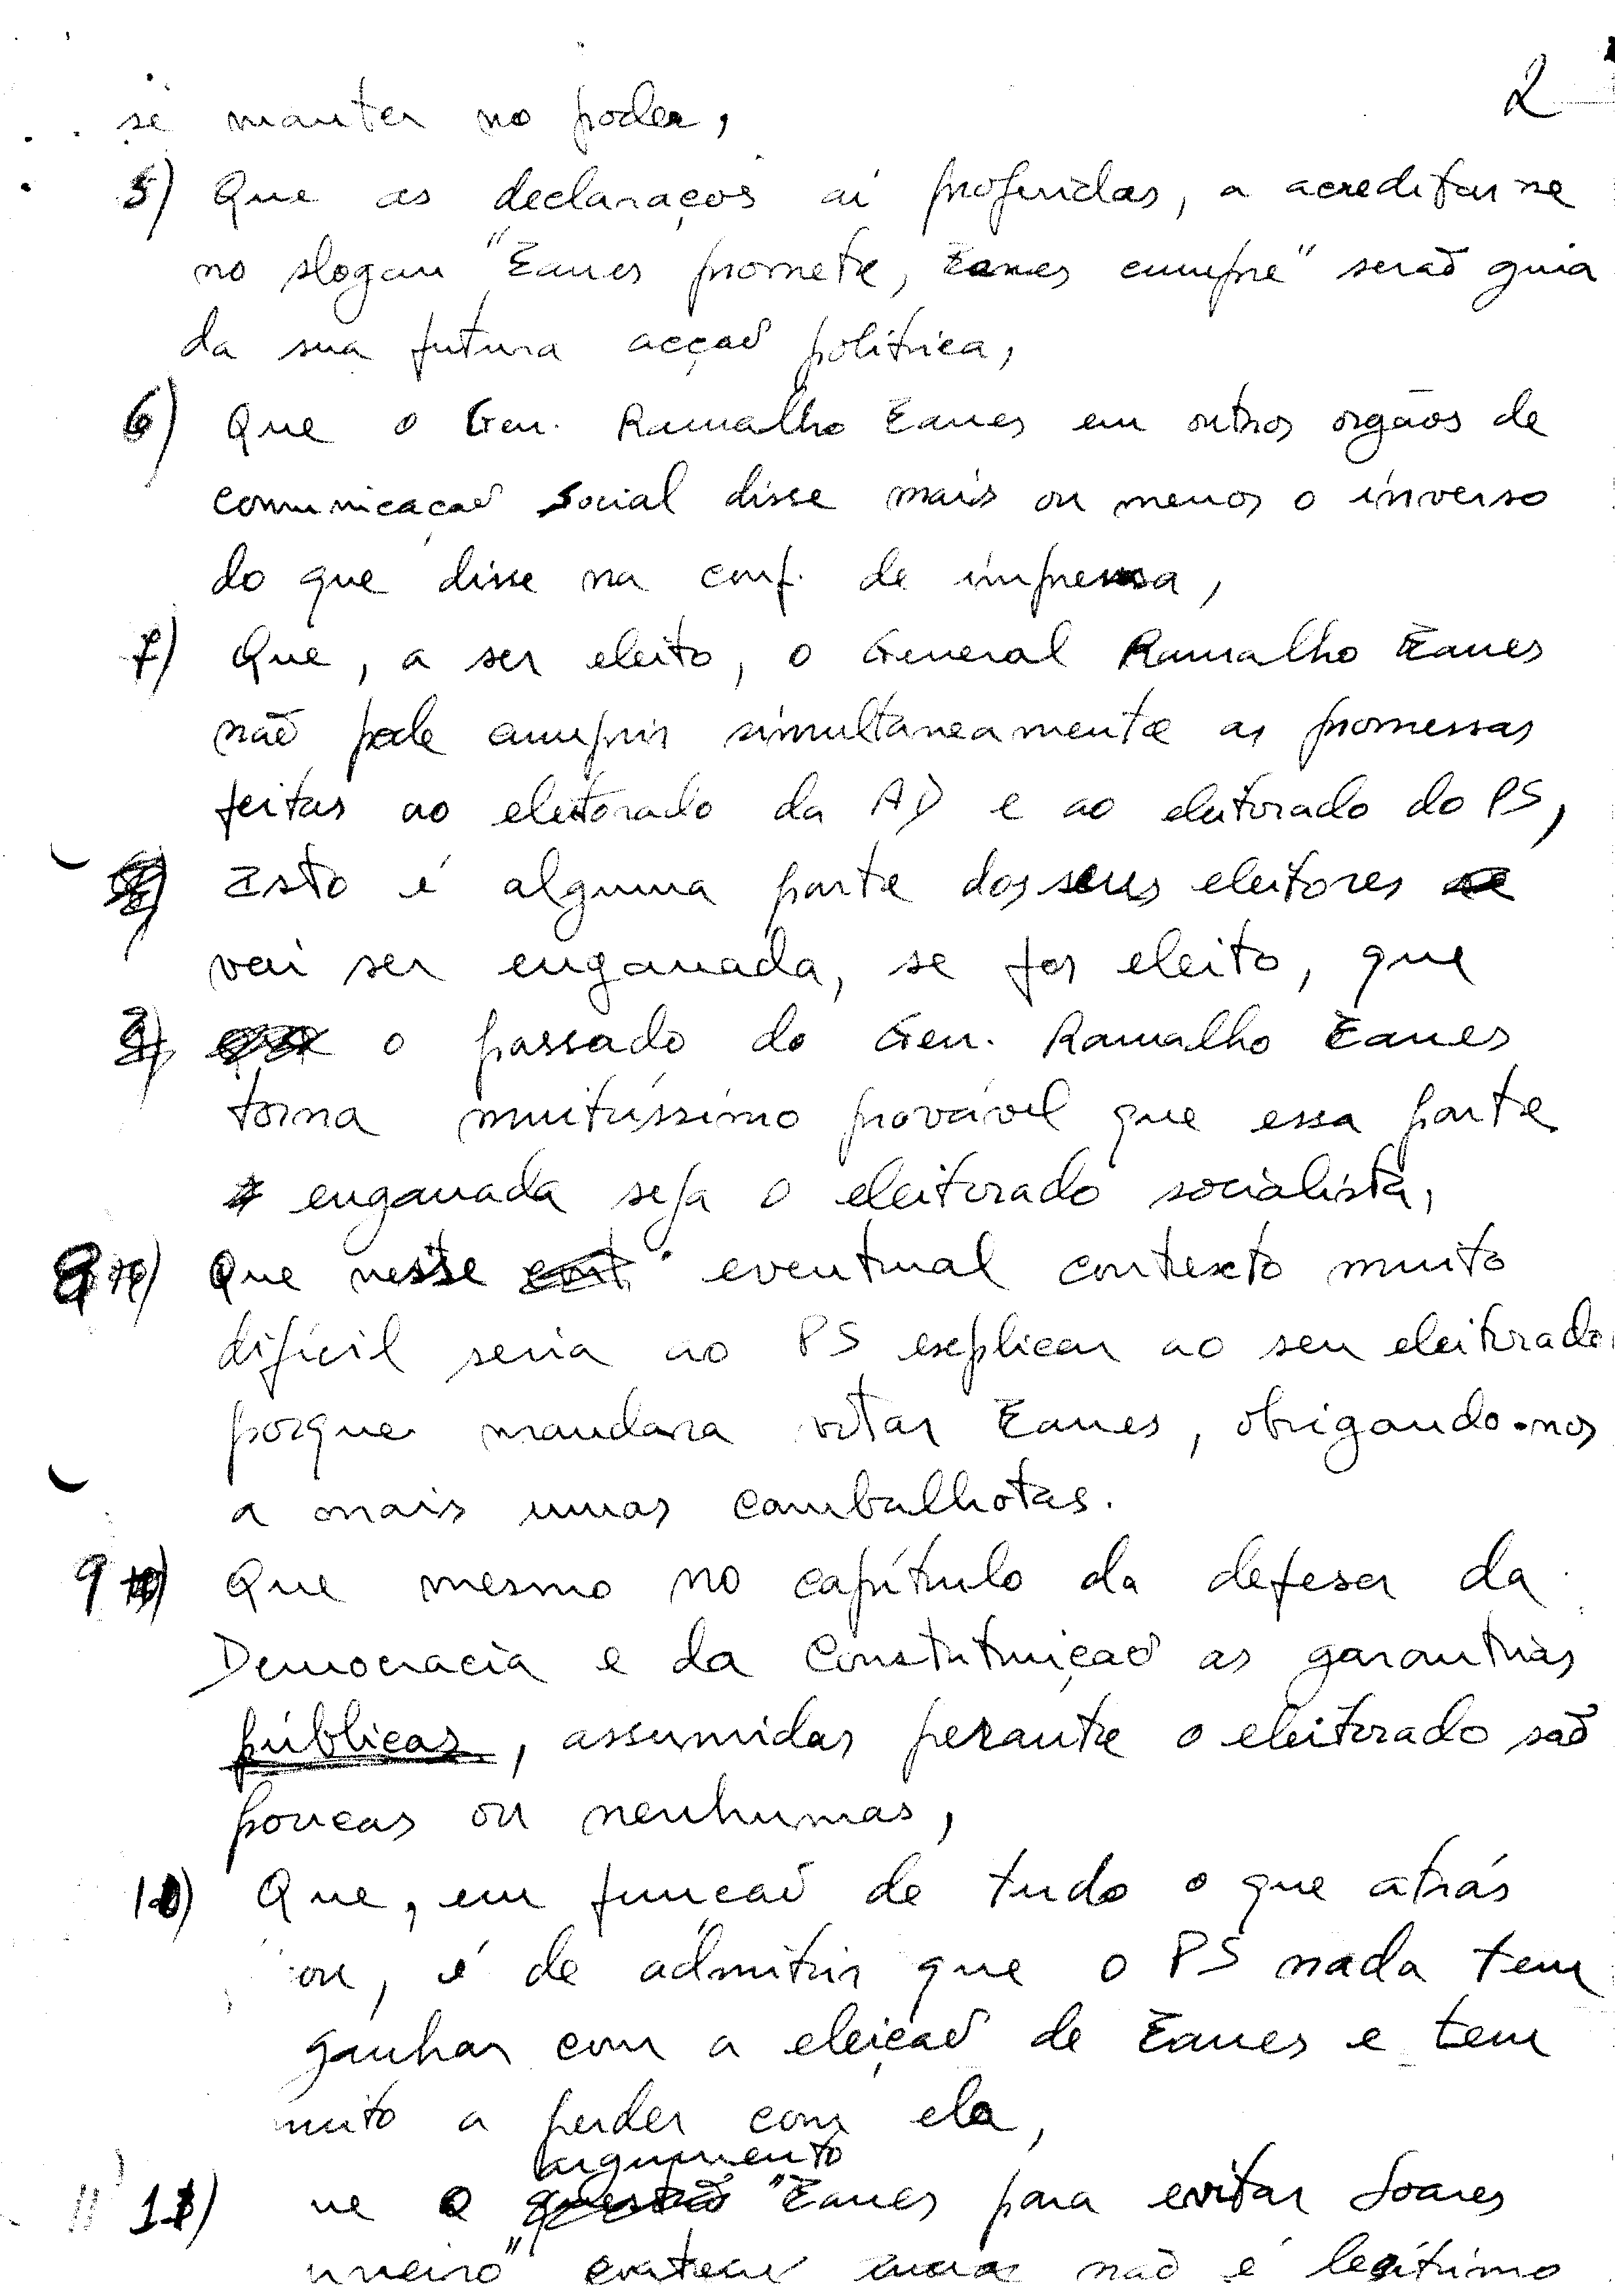 2
se manter no poder,
5) Que as declarações aí proferidas, a acreditar-se
no slogan "Eanes promete, Eanes cumpre" serão guia
da sua futura acção política,
6) Que o Gen. Ramalho Eanes em outros orgãos de
comunicação social disse mais ou menos o inverso
do que disse na conf. de imprensa,
7) Que, a ser eleito, o General Ramalho Eanes
não pode cumprir simultaneamente as promessas
feitas ao eleitorado da AD e ao eleitorado do PS,
Isto é alguma parte dos seus eleitores
vai ser enganada, se for eleito, que
o passado do Gen. Ramalho Eanes
torna muitíssimo provável que essa parte
enganada seja o eleitorado socialista,
8) Que nesse eventual contexto muito
difícil seria ao PS explicar ao seu eleitorado
porque mandara votar Eanes, obrigando-nos
a mais umas cambalhotas.
9) Que mesmo no capítulo da defesa da
Democracia e da Constituição as garantias
públicas, assumidas perante o eleitorado são
poucas ou nenhumas,
10) Que, em função de tudo o que atrás
ou, é de admitir que o PS nada tem
ganhar com a eleição de Eanes e tem
muito a perder com ela,
argumento
11) ue o "Eanes para evitar Soares
neiro" não é legítimo